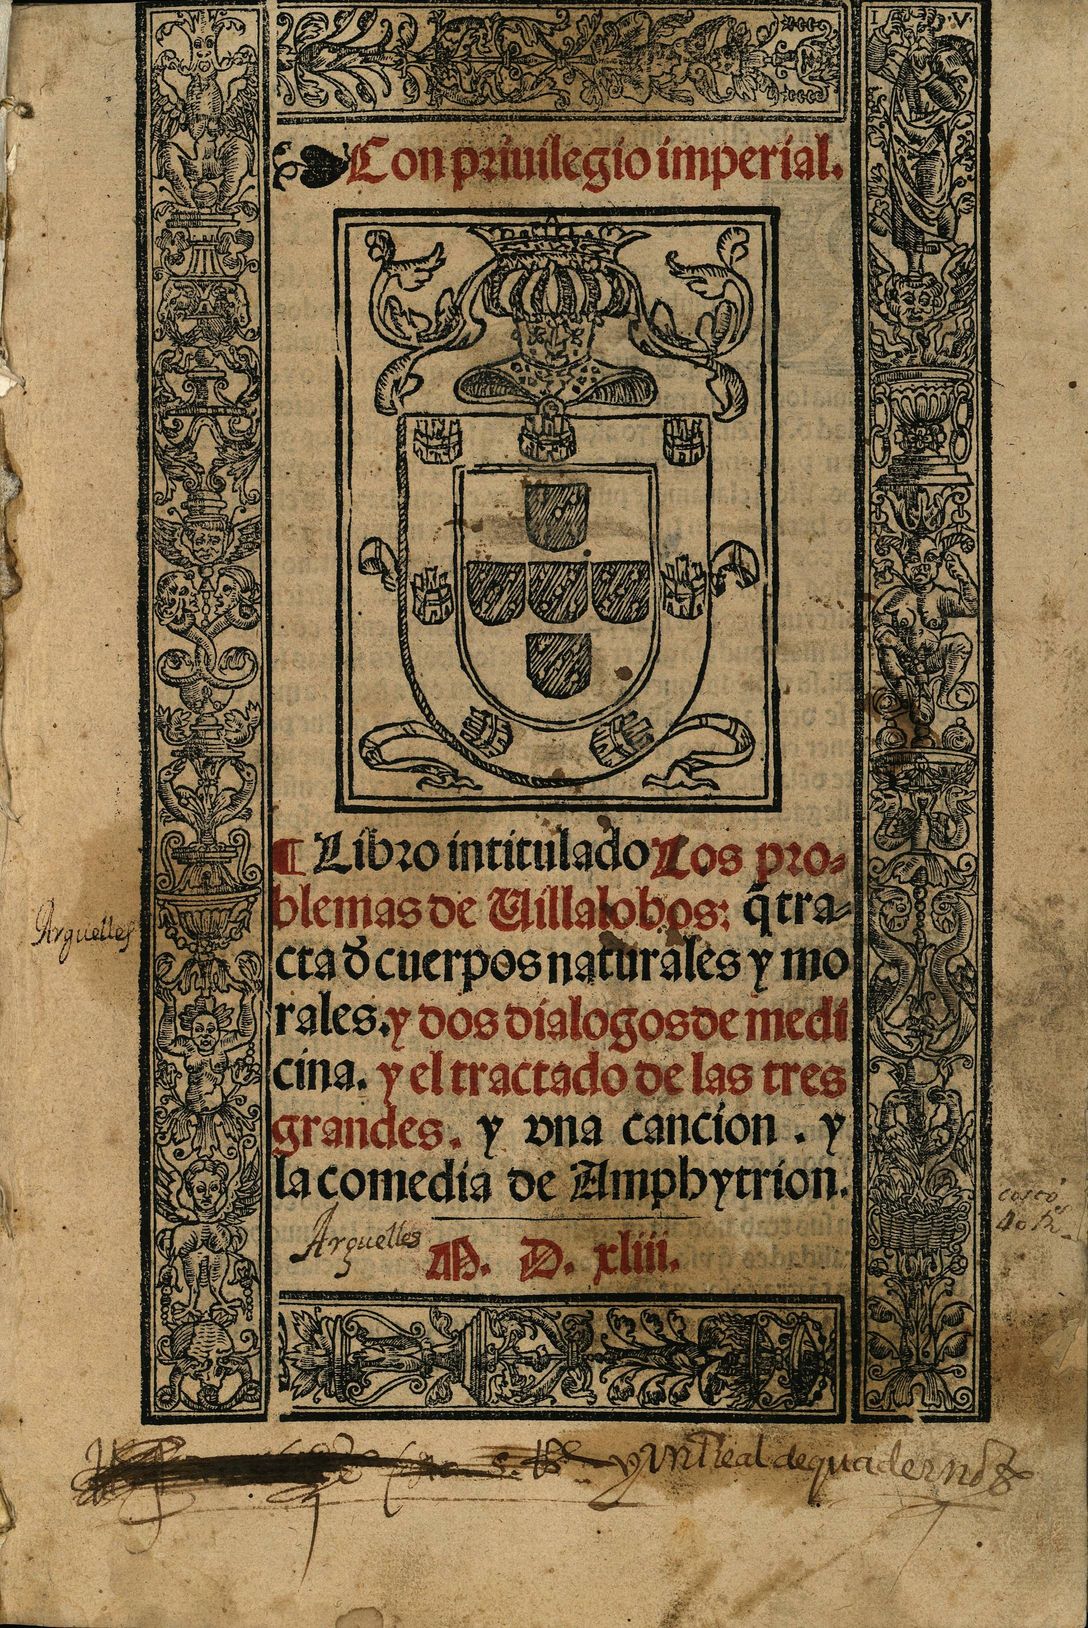 I·V·
Con priuilegio imperial.
¶ Libro intitulado Los pro-
blemas de Uillalobos: q̃ tra-
cta d̃ cuerpos naturales y mo
rales. y dos dialogos de medi
cina. y el tractado de las tres
grandes. y vna cancion. y
la comedia de Amphytrion.
Arguelles
Arguelles
M. D. xliii.
costo
y un Real de quadernar